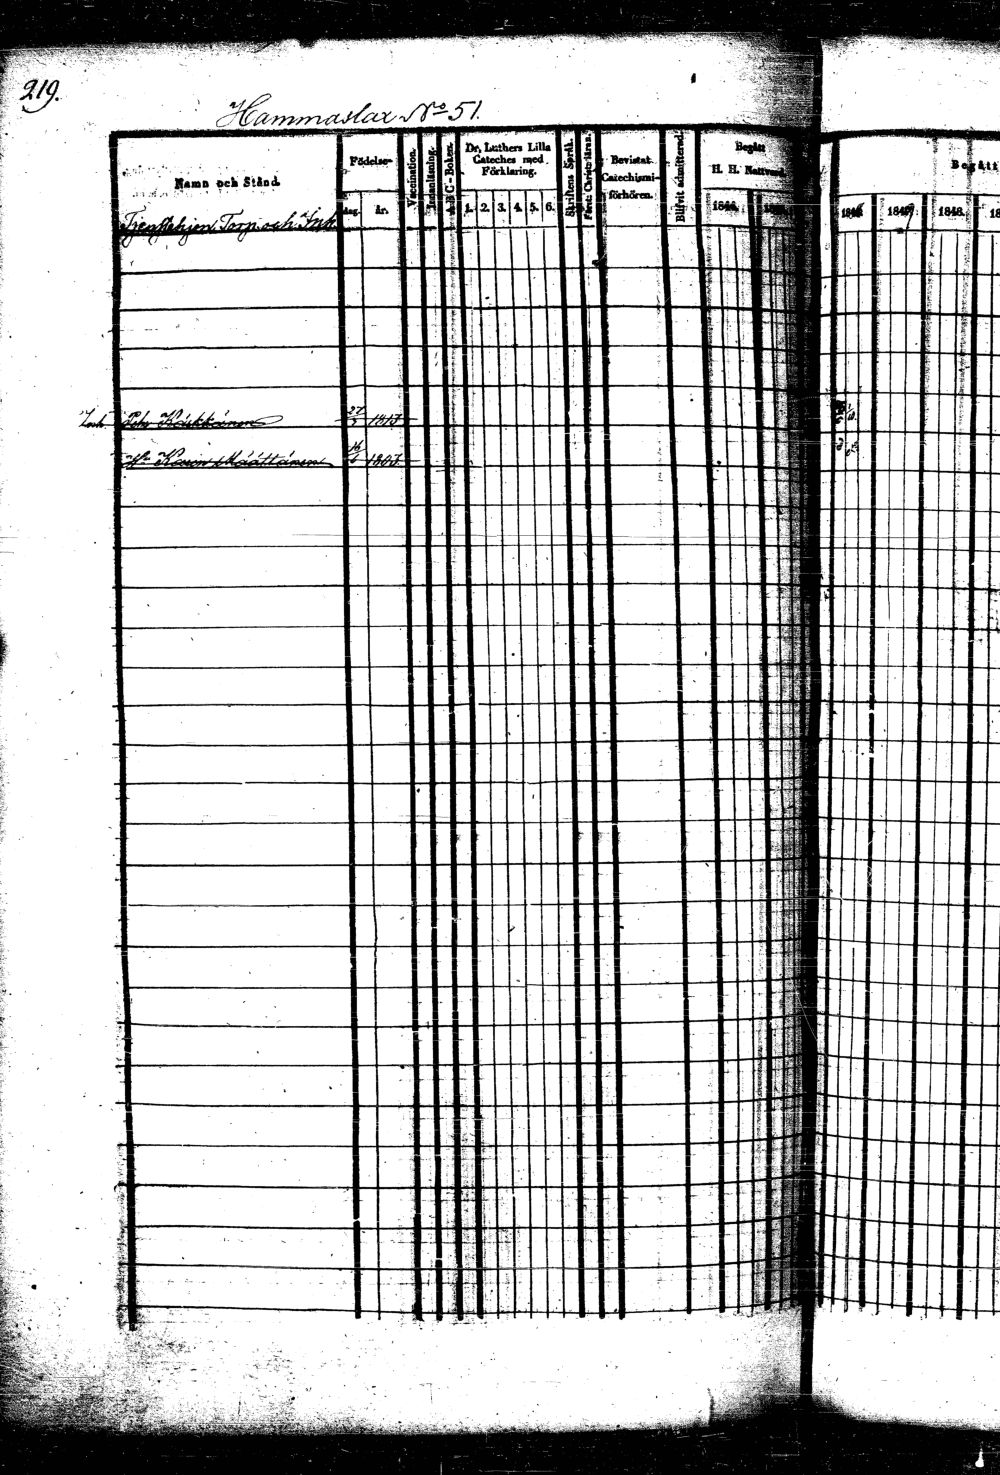 219.
Hammaslax No 51.
Namn och Stånd.
Födelse-
dag. år.
Vaccination.
Innanläsning.
A B C-Boken.
Dr, Luthers Lilla
Cateches med
Förklaring.
1. 2. 3. 4. 5. 6.
Skriftens Språk.
Först. Christ. läran.
Bevistat
Catechismi-
förhören.
Blifvit admitterad.
Begått
H. H. Nattvard.
1844.
Begått
1846 1847 1848.
Tjenstehjon, Torp. och Inh.
Inh. Pehr Kärkkäinen 27/5 1813
Hu Karin Määttänen 1807